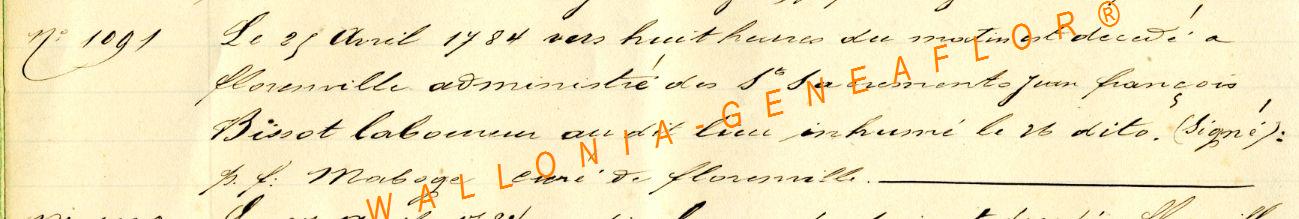 N° 1091 Le 25 Avril 1784 vers huit heures du matin est décédé a
florenville administré des Sts Sacrements Jean françois
Bissot laboureur au dit lieu inhumé le 26 dito. (Signé):
p. f. Maboge curé de florenville.
WALLONIA-GENEAFLOR®